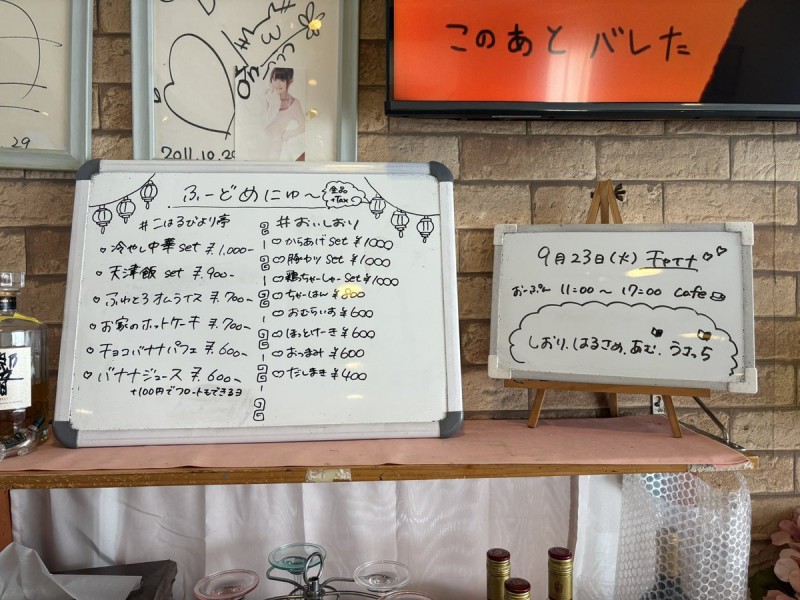 このあとバレた
29
2011.10.20
ふーどめにゅ〜
全品
+Tax
#こはるびより亭
♡ 冷やし中華 set ¥.1,000-
♡ 天津飯 set ¥.900-
♡ ふわとろオムライス ¥.700-
♡ お家のホットケーキ ¥.700-
♡ チョコバナナパフェ ¥.600-
♡ バナナジュース ¥.600-
+100円でフロートもできるヨ
#おいしおり
♡からあげ set ¥1000
♡豚カツ Set ¥1000
♡鶏ちゃーしゅーSet ¥1000
♡ちゃーはん ¥800
♡おむらいす ¥600
♡ほっとけーき ¥600
♡おつまみ ¥600
♡だしまき ¥400
9月23日(火) チャイナ ♡♡
おーぷん 11:00〜17:00 cafe
しおり.はるさめ.あむ.うさっち